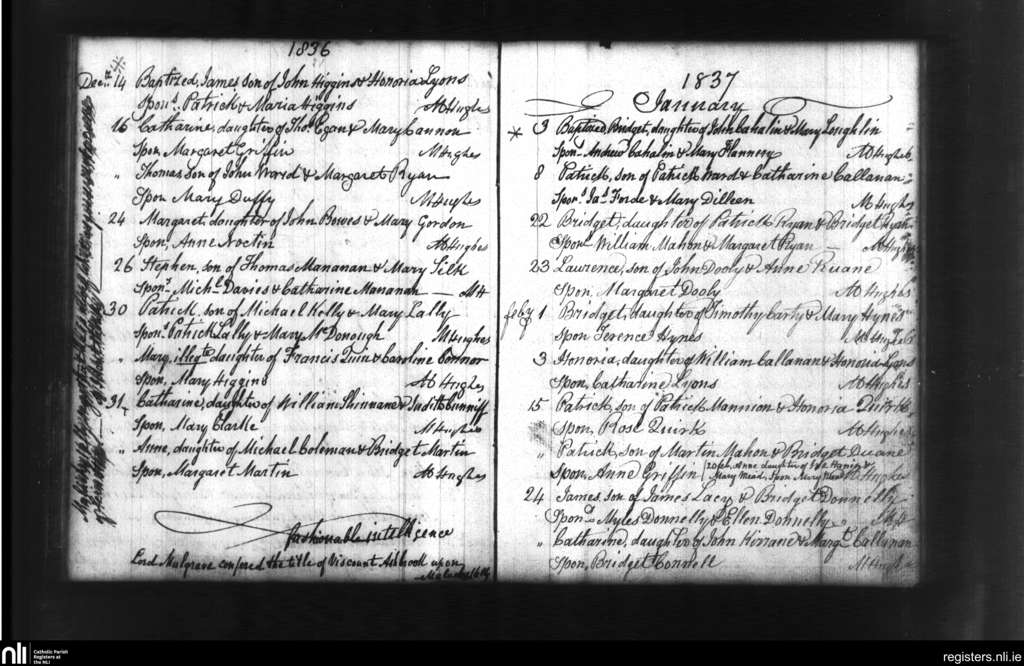 1836
Decr. 14 Baptized, James, son of John Higgins & Honoria Lyons
Spons. Patrick & Maria Higgins M Hughes
16 Catharine, daughter of Thos. Egan & Mary Cannon
Spon, Margaret Griffin M Hughes
" Thomas son of John Ward & Margaret Ryan
Spon Mary Duffy M Hughes
24 Margaret, daughter of John Bowes & Mary Gordon
Spon, Anne M Hughes
26 Stephen, son of Thomas Mananan & Mary Silk
Spons. Michl. Davies & Catharine Mananan — MH
30 Patrick, son of Michael Kelly & Mary Lally
Spons. Patrick Lally & Mary McDonough M Hughes
" Mary, illegte. daughter of Francis & Caroline
Spon, Mary Higgins M Hughes
31 Catharine, daughter of William & Judith Cunniff
Spon, Mary Clarke M Hughes
" Anne, daughter of Michael Coleman & Bridget Martin
Spon, Margaret Martin M Hughes
fashionable intelligence
Lord Mulgrave confered the title of Viscount Ashbrook upon
1837
January
* 3 Baptized, Bridget, daughter of John Cahalin & Mary Loughlin
Spons. Andrew Cahalin & Mary Flannery M Hughes
8 Patrick, son of Patrick Ward & Catharine Callanan
Spons. Jas. Forde & Mary Dilleen M Hughes
22 Bridget, daughter of Patrick Ryan & Bridget Ryan
Spons. William Mahon & Margaret Ryan — M Hughes
23 Laurence, son of John Dooly & Anne Ruane
Spon, Margaret Dooly M Hughes
Feby 1 Bridget, daughter of Timothy Carty & Mary Hynes
Spon Terence Hynes M Hughes
3 Honoria, daughter of William Callanan & Honoria Lyons
Spon, Catharine Lyons M Hughes
15 Patrick, son of Patrick Mannion & Honoria Quirk
Spon, Rose Quirk M Hughes
" Patrick, son of Martin Mahon & Bridget Duane
Spon, Anne Griffin M Hughes
20 Feb, Anne daughter of
Mary Mead, Spon Mary Mead
24 James, son of James Lacy & Bridget Donnelly
Spons. Myles Donnelly & Ellen Donnelly
" Catharine, daughter of John Kirrane & Margt. Callanan
Spon, Bridget Connell M Hughes
nli
Catholic Parish
Registers at
the NLI
registers.nli.ie